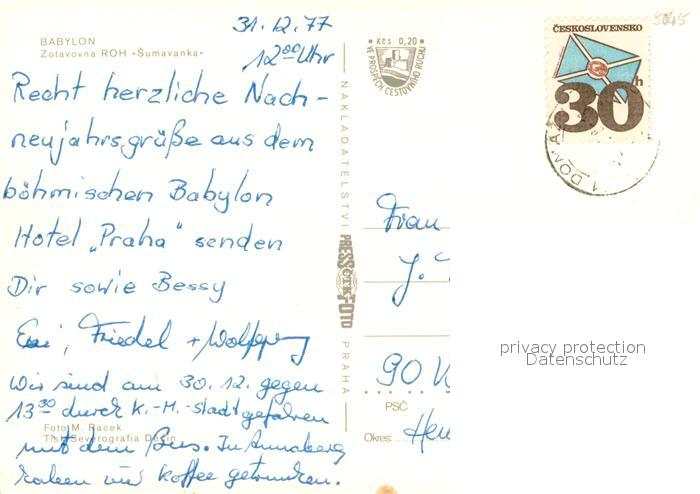 31.12.77
12⁰⁰ Uhr
BABYLON
Zotavovna ROH »Šumavanka«
Recht herzliche Nach-
neujahrsgrüße aus dem
böhmischen Babylon
Hotel „Praha“ senden
Dir sowie Bessy
Friedel + Wolfgang
Wir sind am 30.12. gegen
13³⁰ durch K.-M.-Stadt gefahren
Foto M. Racek
Tisk Severografia Děčín
mit dem Bus. In Annaberg
haben wir Koffee getrunken.
NAKLADATELSTVÍ PRESSFOTO PRAHA
ČTK
Kčs 0,20
VE PROSPĚCH CESTOVNÍHO RUCHU
5045
ČESKOSLOVENSKO
30h
Frau
J.
90
PSČ
Okres:
privacy protection
Datenschutz